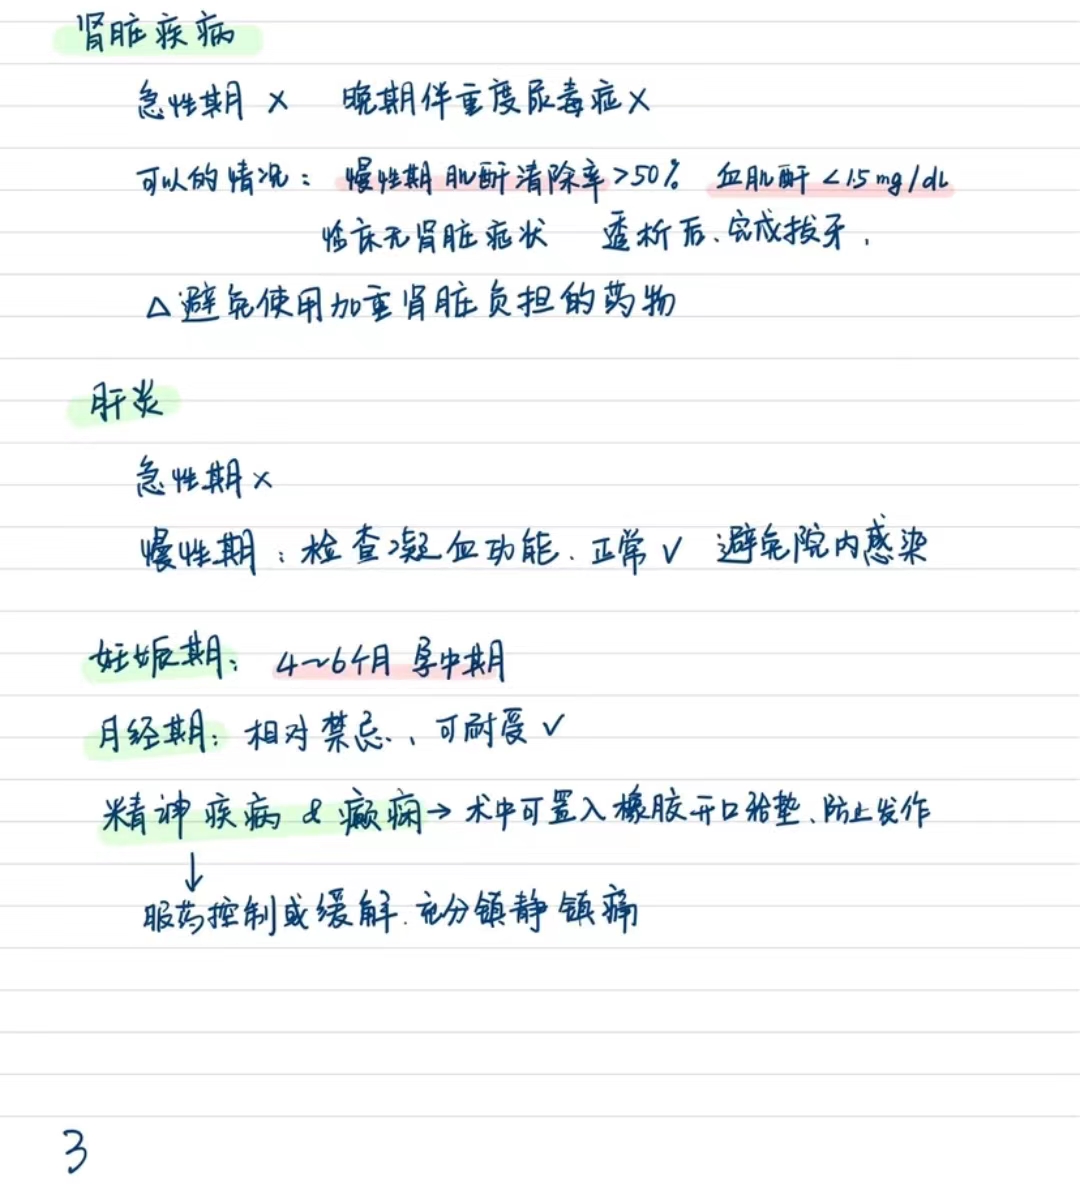 肾脏疾病
急性期 × 晚期伴重度尿毒症×
可以的情况： 慢性期 肌酐清除率>50% 血肌酐<1.5mg/dL
临床无肾脏症状 透析后、完成拔牙.
△避免使用加重肾脏负担的药物
肝炎
急性期×
慢性期：检查凝血功能、正常√ 避免院内感染
妊娠期： 4~6个月 孕中期
月经期：相对禁忌、可耐受√
精神疾病 & 癫痫→ 术中可置入橡胶开口𬌗垫、防止发作
↓
服药控制或缓解.充分镇静镇痛
3